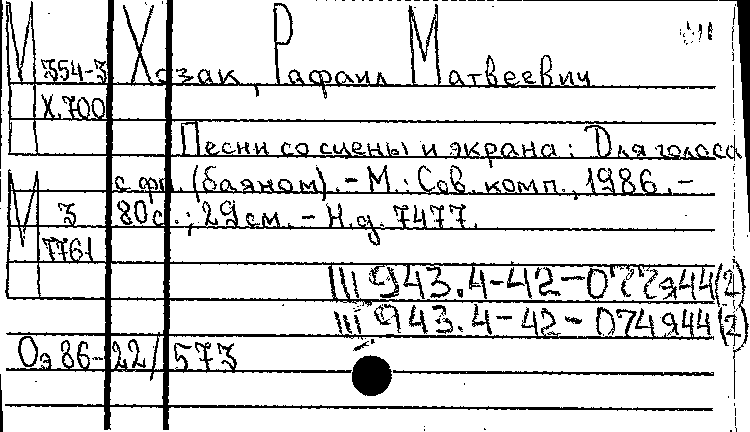 М 354-3 Хозак, Рафаил Матвеевич
Х.700
Песни со сцены и экрана: Для голоса
с фп. (баяном). - М.: Сов. комп., 1986. -
М 3 80с.; 29см. - Н.д. 7477.
7761
Ш943.4-42-077я44(2)
Ш943.4-42-074я44(2)
Оэ 86-22/573